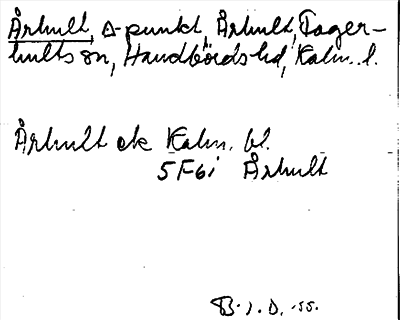 Århult, △-punkt, Århult, Fager-
hults sn, Handbörds hd, Kalm. l.
Århult ek Kalm. bl.
5F6i Århult
B.J.D. -55.